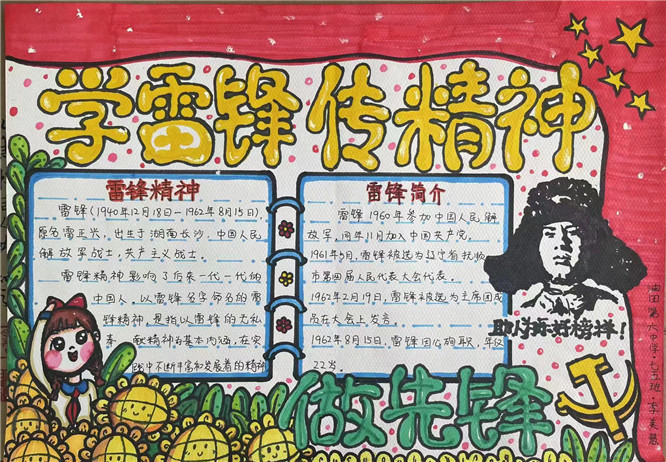 学雷锋 传精神
雷锋精神
雷锋(1940年12月18日—1962年8月15日),
原名雷正兴,出生于湖南长沙,中国人民
解放军战士,共产主义战士。
雷锋精神影响了后来一代一代的
中国人。以雷锋名字命名的雷
锋精神,是指以雷锋的无私
奉献精神为基本内涵,在实
践中不断丰富和发展着的精神
雷锋简介
雷锋1960年参加中国人民解
放军,同年11月加入中国共产党。
1961年5月,雷锋被选为辽宁省抚顺
市第四届人民代表大会代表。
1962年2月19日,雷锋被选为主席团成
员在大会上发言。
1962年8月15日,雷锋因公殉职,年仅
22岁。
好榜样!
做先锋
油田第六中学·七五班·李美慧